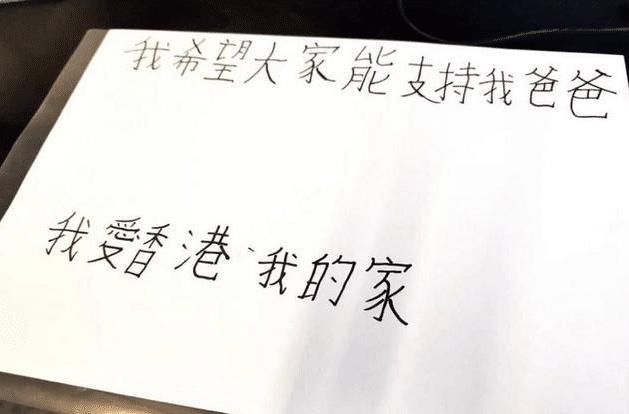 我希望大家能支持我爸爸
我愛香港、我的家